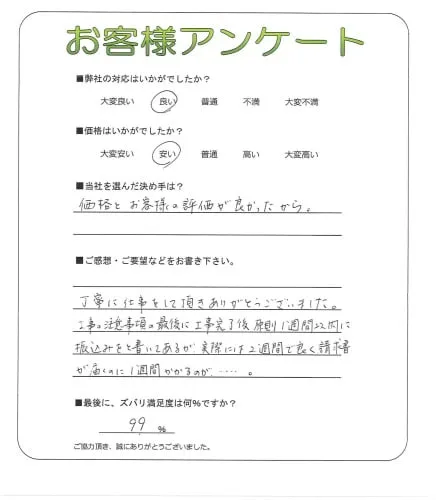 お客様アンケート
■弊社の対応はいかがでしたか？
大変良い 良い 普通 不満 大変不満
■価格はいかがでしたか？
大変安い 安い 普通 高い 大変高い
■当社を選んだ決め手は？
価格とお客様の評価が良かったから。
■ご感想・ご要望などをお書き下さい。
丁寧に仕事をして頂きありがとうございました。
工事の注意事項の最後に工事完了後原則1週間以内に
振込みをと書いてあるが実際には2週間で良く請求書
が届くのに1週間かかるのが……。
■最後に、ズバリ満足度は何％ですか？
99 %
ご協力頂き、誠にありがとうございました。